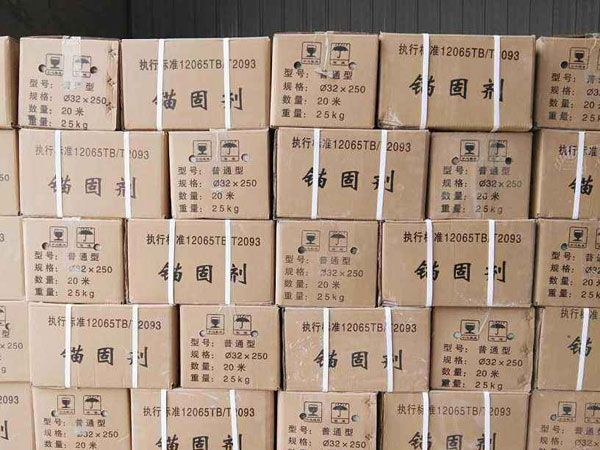 型号: 普通型
规格: Ø32×250
数量: 20 米
重量: 25kg
执行标准12065TB/T2093
锚固剂
型号: 普通型
规格: Ø32×250
数量: 20 米
重量: 25kg
执行标准12065TB/T2093
锚固剂
执行标准12065TB/T2093
锚固剂
型号: 普通型
规格: Ø32×250
数量: 20 米
重量: 25kg
执行标准12065TB/T2093
锚固剂
型号: 普通型
规格: Ø32×250
数量: 20 米
重量: 25kg
型号: 普通型
规格: Ø32×250
数量: 20 米
重量: 25kg
执行标准12065TB/T2093
锚固剂
型号: 普通型
规格: Ø32×250
数量: 20 米
重量: 25kg
执行标准12065TB/T2093
锚固剂
执行标准12065TB/T2093
锚固剂
型号: 普通型
规格: Ø32×250
数量: 20 米
重量: 25kg
执行标准12065TB/T2093
锚固剂
型号: 普通型
规格: Ø32×250
数量: 20 米
重量: 25kg
型号: 普通型
规格: Ø32×250
执行标准12065TB/T2093
锚固剂
型号: 普通型
规格: Ø32×250
执行标准12065TB/T2093
锚固剂
型号: 普通型